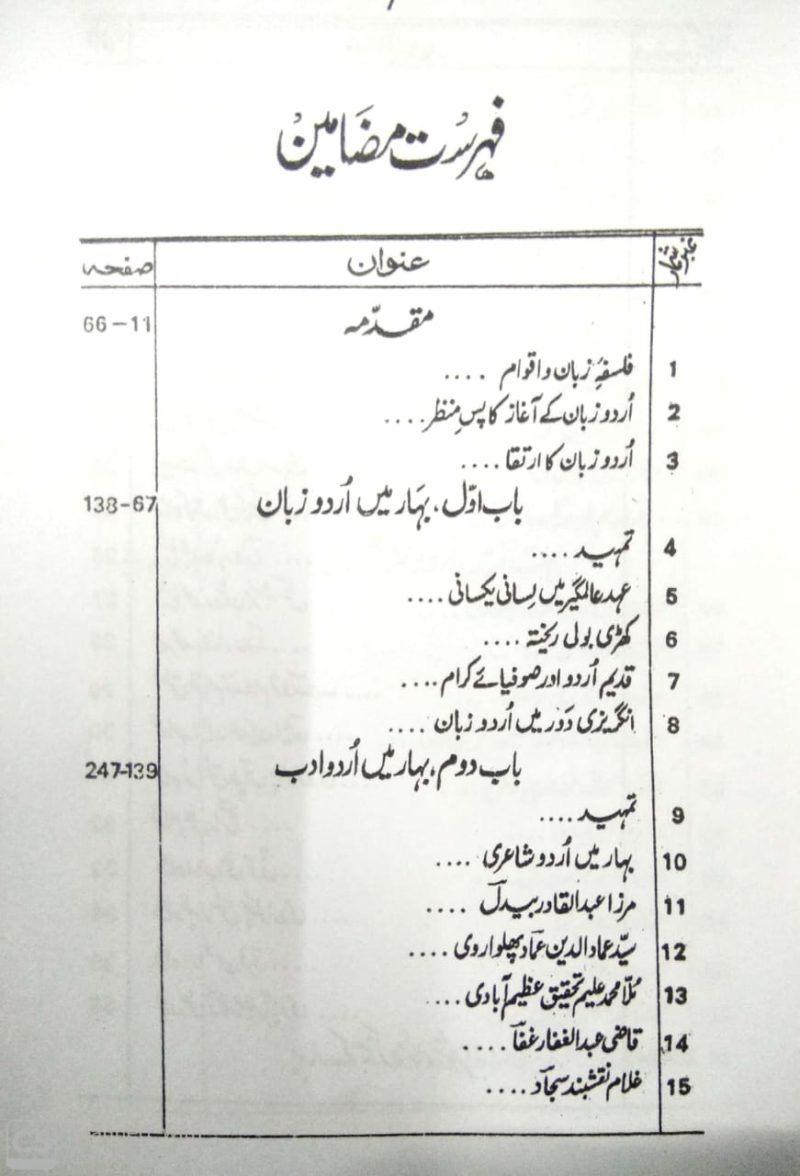 فہرست مضامین
نمبر شمار عنوان صفحہ
مقدّمہ 11–66
1 فلسفۂ زبان و اقوام ....
2 اُردو زبان کے آغاز کا پسِ منظر ....
3 اُردو زبان کا ارتقا ....
باب اوّل، بہار میں اُردو زبان 67–138
4 تمہید ....
5 عہد عالمگیر میں لِسانی یکسانی ....
6 کھڑی بولی ریختہ ....
7 قدیم اُردو اور صوفیائے کرام ....
8 انگریزی دَور میں اُردو زبان ....
باب دوم، بہار میں اُردو ادب 139-247
9 تمہید ....
10 بہار میں اُردو شاعری ....
11 مرزا عبدالقادر بیدلؔ ....
12 سیّد عماد الدین عمادؔ پھلواروی ....
13 مُلّا محمد علیم تحقیق عظیم آبادی ...
14 قاضی عبدالغفار غفاؔ ....
15 غلام نقشبند سجادؔ ....